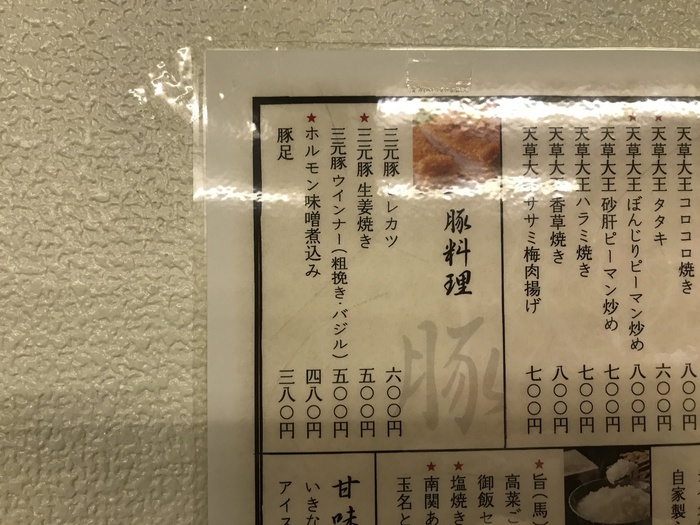 天草大王コロコロ焼き 八〇〇円
天草大王 タタキ 六〇〇円
天草大王 ぼんじりピーマン炒め 八〇〇円
天草大王 砂肝ピーマン炒め 七〇〇円
天草大王ハラミ焼き 七〇〇円
天草大王 香草焼き 八〇〇円
天草大王ササミ梅肉揚げ 七〇〇円
豚料理
豚
三元豚 レカツ 六〇〇円
★三元豚 生姜焼き 五〇〇円
三元豚 ウインナー(粗挽き・バジル) 五〇〇円
★ホルモン味噌煮込み 四八〇円
豚足 三八〇円
自家製
★旨(馬
高菜ご
御飯セ
★塩焼き
★南関あ
玉名と
甘味
いきな
アイス